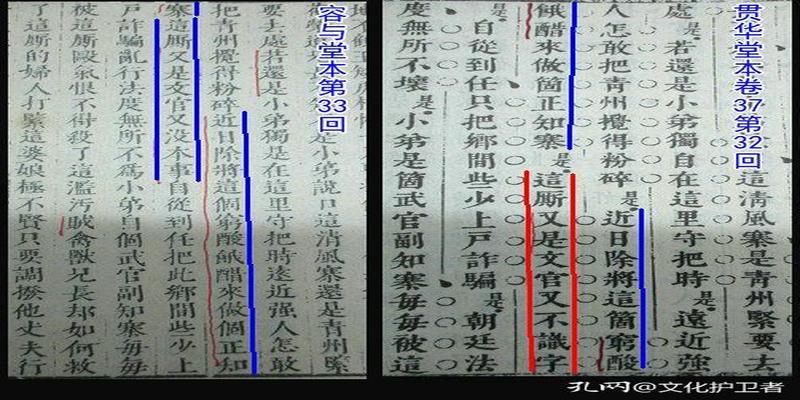 贯华堂本卷37第32回
這清風寨是青州緊要去
處若還是小弟獨自在這里守把時是遠近強
人怎敢把青州攪得粉碎是近日除將這箇窮酸
餓醋來做箇正知寨是這厮又是文官又不識字
自從到任只把鄉間些少上戶詐騙是朝廷法
度無所不壞是小弟是箇武官副知寨每每被這
容与堂本第33回
是小弟說口這清風寨還是青州緊
要去處若還是小弟獨是在這里守把時遠近強人怎敢
把青州攪得粉碎近日除將這個窮酸餓醋來做個正知
寨這厮又是文官又没本事自從到任把此鄉間些少上
戶詐騙亂行法度無所不爲小弟自個武官副知寨每每
被這厮毆氣恨不得殺了這濫汚賊禽獸兄長却如何救
了這厮的婦人打緊這婆娘極不賢只要調撥他丈夫行
孔网@文化护卫者